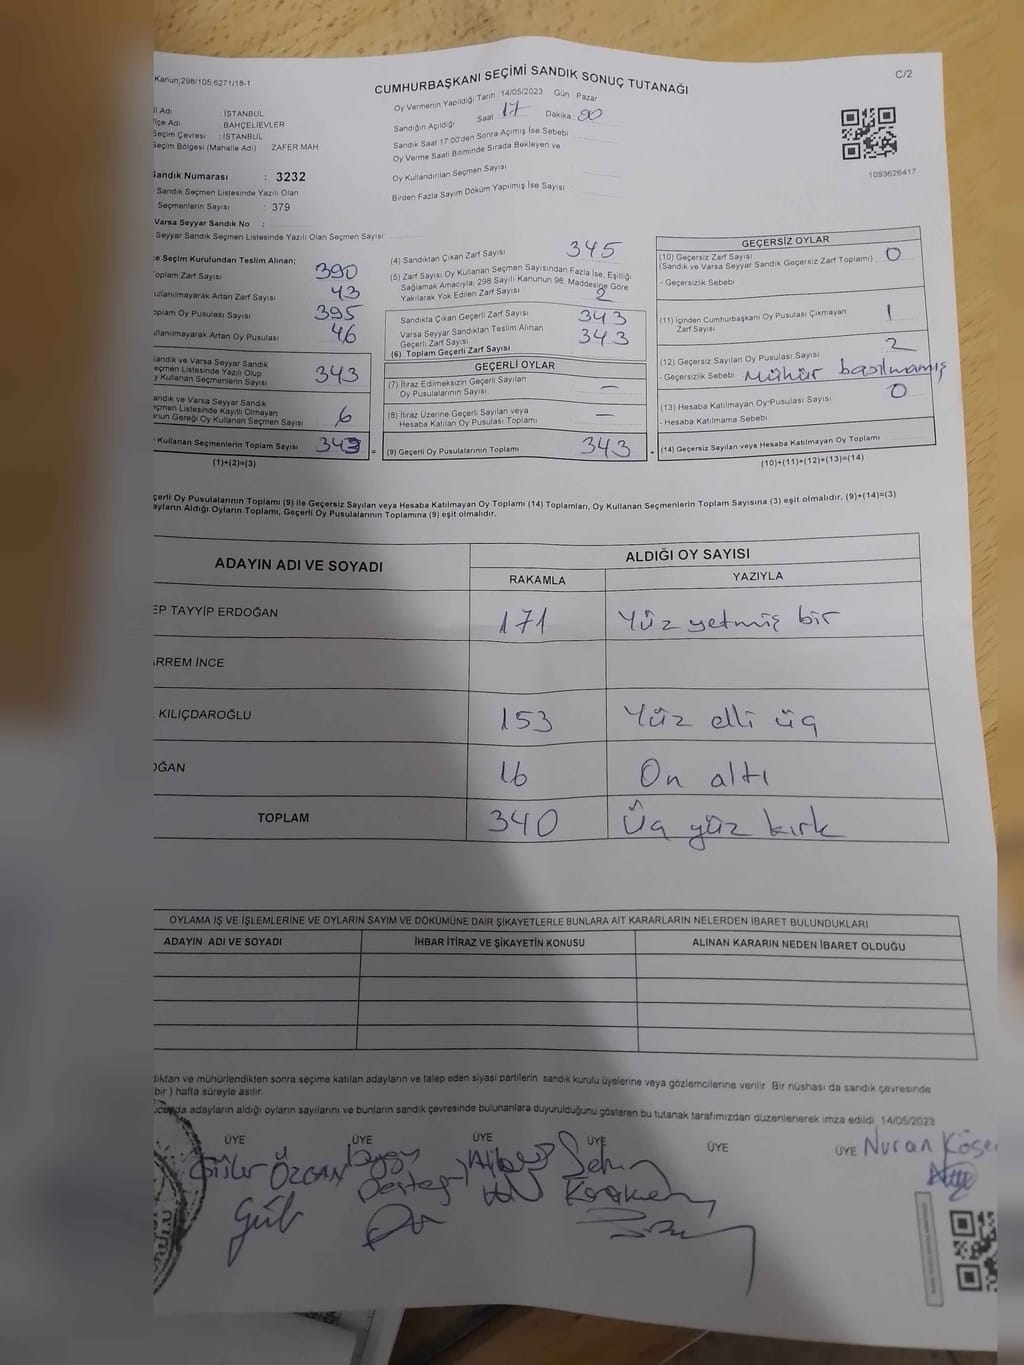 Kanun;298/105;6271/18-1
CUMHURBAŞKANI SEÇİMİ SANDIK SONUÇ TUTANAĞI
C/2
Oy Vermenin Yapıldığı Tarih : 14/05/2023 Gün : Pazar
Sandığın Açıldığı Saat 17 Dakika : 00
Sandık Saat 17:00'den Sonra Açımış İse Sebebi
Oy Verme Saati Bitiminde Sırada Bekleyen ve
Oy Kullandırılan Seçmen Sayısı
Birden Fazla Sayım Döküm Yapılmış İse Sayısı :
İli Adı : İSTANBUL
İlçe Adı : BAHÇELİEVLER
Seçim Çevresi : İSTANBUL
Seçim Bölgesi (Mahalle Adı) ZAFER MAH.
Sandık Numarası : 3232
Sandık Seçmen Listesinde Yazılı Olan
Seçmenlerin Sayısı : 379
Varsa Seyyar Sandık No :
Seyyar Sandık Seçmen Listesinde Yazılı Olan Seçmen Sayısı
1093626417
e Seçim Kurulundan Teslim Alınan;
oplam Zarf Sayısı 390
ullanılmayarak Artan Zarf Sayısı 43
oplam Oy Pusulası Sayısı 395
llanılmayarak Artan Oy Pusulası 46
andık ve Varsa Seyyar Sandık
eçmen Listesinde Yazılı Olup
y Kullanan Seçmenlerin Sayısı 343
andık ve Varsa Seyyar Sandık
çmen Listesinde Kayıtlı Olmayan
nun Gereği Oy Kullanan Seçmen Sayısı 6
Kullanan Seçmenlerin Toplam Sayısı =
(1)+(2)=(3)
(4) Sandıktan Çıkan Zarf Sayısı 345
(5) Zarf Sayısı Oy Kullanan Seçmen Sayısından Fazla İse, Eşitliği
Sağlamak Amacıyla, 298 Sayılı Kanunun 98. Maddesine Göre
Yakılarak Yok Edilen Zarf Sayısı 2
Sandıkta Çıkan Geçerli Zarf Sayısı 343
Varsa Seyyar Sandıktan Teslim Alınan
Geçerli Zarf Sayısı 343
(6) Toplam Geçerli Zarf Sayısı
GEÇERLİ OYLAR
(7) İtiraz Edilmeksizin Geçerli Sayılan
Oy Pusulalarının Sayısı —
(8) İtiraz Üzerine Geçerli Sayılan veya
Hesaba Katılan Oy Pusulası Toplamı —
(9) Geçerli Oy Pusulalarının Toplamı 343 +
GEÇERSİZ OYLAR
(10) Geçersiz Zarf Sayısı
(Sandık ve Varsa Seyyar Sandık Geçersiz Zarf Toplamı) 0
- Geçersizlik Sebebi
(11) İçinden Cumhurbaşkanı Oy Pusulası Çıkmayan
Zarf Sayısı 1
(12) Geçersiz Sayılan Oy Pusulası Sayısı 2
- Geçersizlik Sebebi Mühür basılmamış
(13) Hesaba Katılmayan Oy Pusulası Sayısı 0
- Hesaba Katılmama Sebebi
(14) Geçersiz Sayılan veya Hesaba Katılmayan Oy Toplamı
(10)+(11)+(12)+(13)=(14)
çerli Oy Pusulalarının Toplamı (9) ile Geçersiz Sayılan veya Hesaba Katılmayan Oy Toplamı (14) Toplamları, Oy Kullanan Seçmenlerin Toplam Sayısına (3) eşit olmalıdır. (9)+(14)=(3)
ayların Aldığı Oyların Toplamı, Geçerli Oy Pusulalarının Toplamına (9) eşit olmalıdır.
ADAYIN ADI VE SOYADI ALDIĞI OY SAYISI
RAKAMLA YAZIYLA
EP TAYYİP ERDOĞAN 171 Yüz yetmiş bir
ARREM İNCE
KILIÇDAROĞLU 153 Yüz elli üç
OĞAN 16 On altı
TOPLAM 340 Üç yüz kırk
OYLAMA İŞ VE İŞLEMLERİNE VE OYLARIN SAYIM VE DÖKÜMÜNE DAİR ŞİKAYETLERLE BUNLARA AİT KARARLARIN NELERDEN İBARET BULUNDUKLARI
ADAYIN ADI VE SOYADI İHBAR İTİRAZ VE ŞİKAYETİN KONUSU ALINAN KARARIN NEDEN İBARET OLDUĞU
dıktan ve mühürlendikten sonra seçime katılan adayların ve talep eden siyasi partilerin sandık kurulu üyelerine veya gözlemcilerine verilir. Bir nüshası da sandık çevresinde
bir ) hafta süreyle asılır.
adayların aldığı oyların sayılarını ve bunların sandık çevresinde bulunanlara duyurulduğunu gösteren bu tutanak tarafımızdan düzenlenerek imza edildi. 14/05/2023
ÜYE ÜYE ÜYE ÜYE ÜYE ÜYE Nuran Köse
ÖZCAN